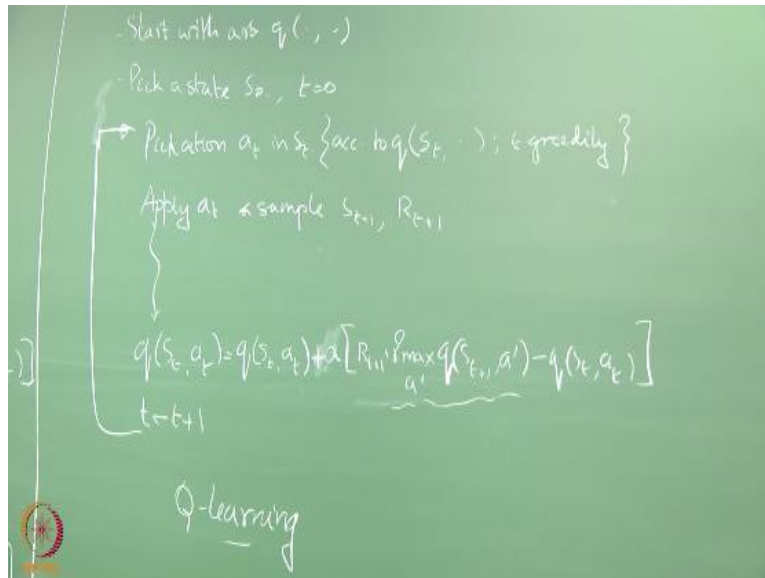 - Start with arb q(·, ·)
- Pick a state S₀, t=0
Pick action a_t in S_t {acc to q(S_t, ·); ε greedily}
Apply a_t & sample S_{t+1}, R_{t+1}
q(S_t, a_t) = q(S_t, a_t) + α[R_{t+1} + γ max_{a'} q(S_{t+1}, a') - q(S_t, a_t)]
t ← t+1
Q-learning